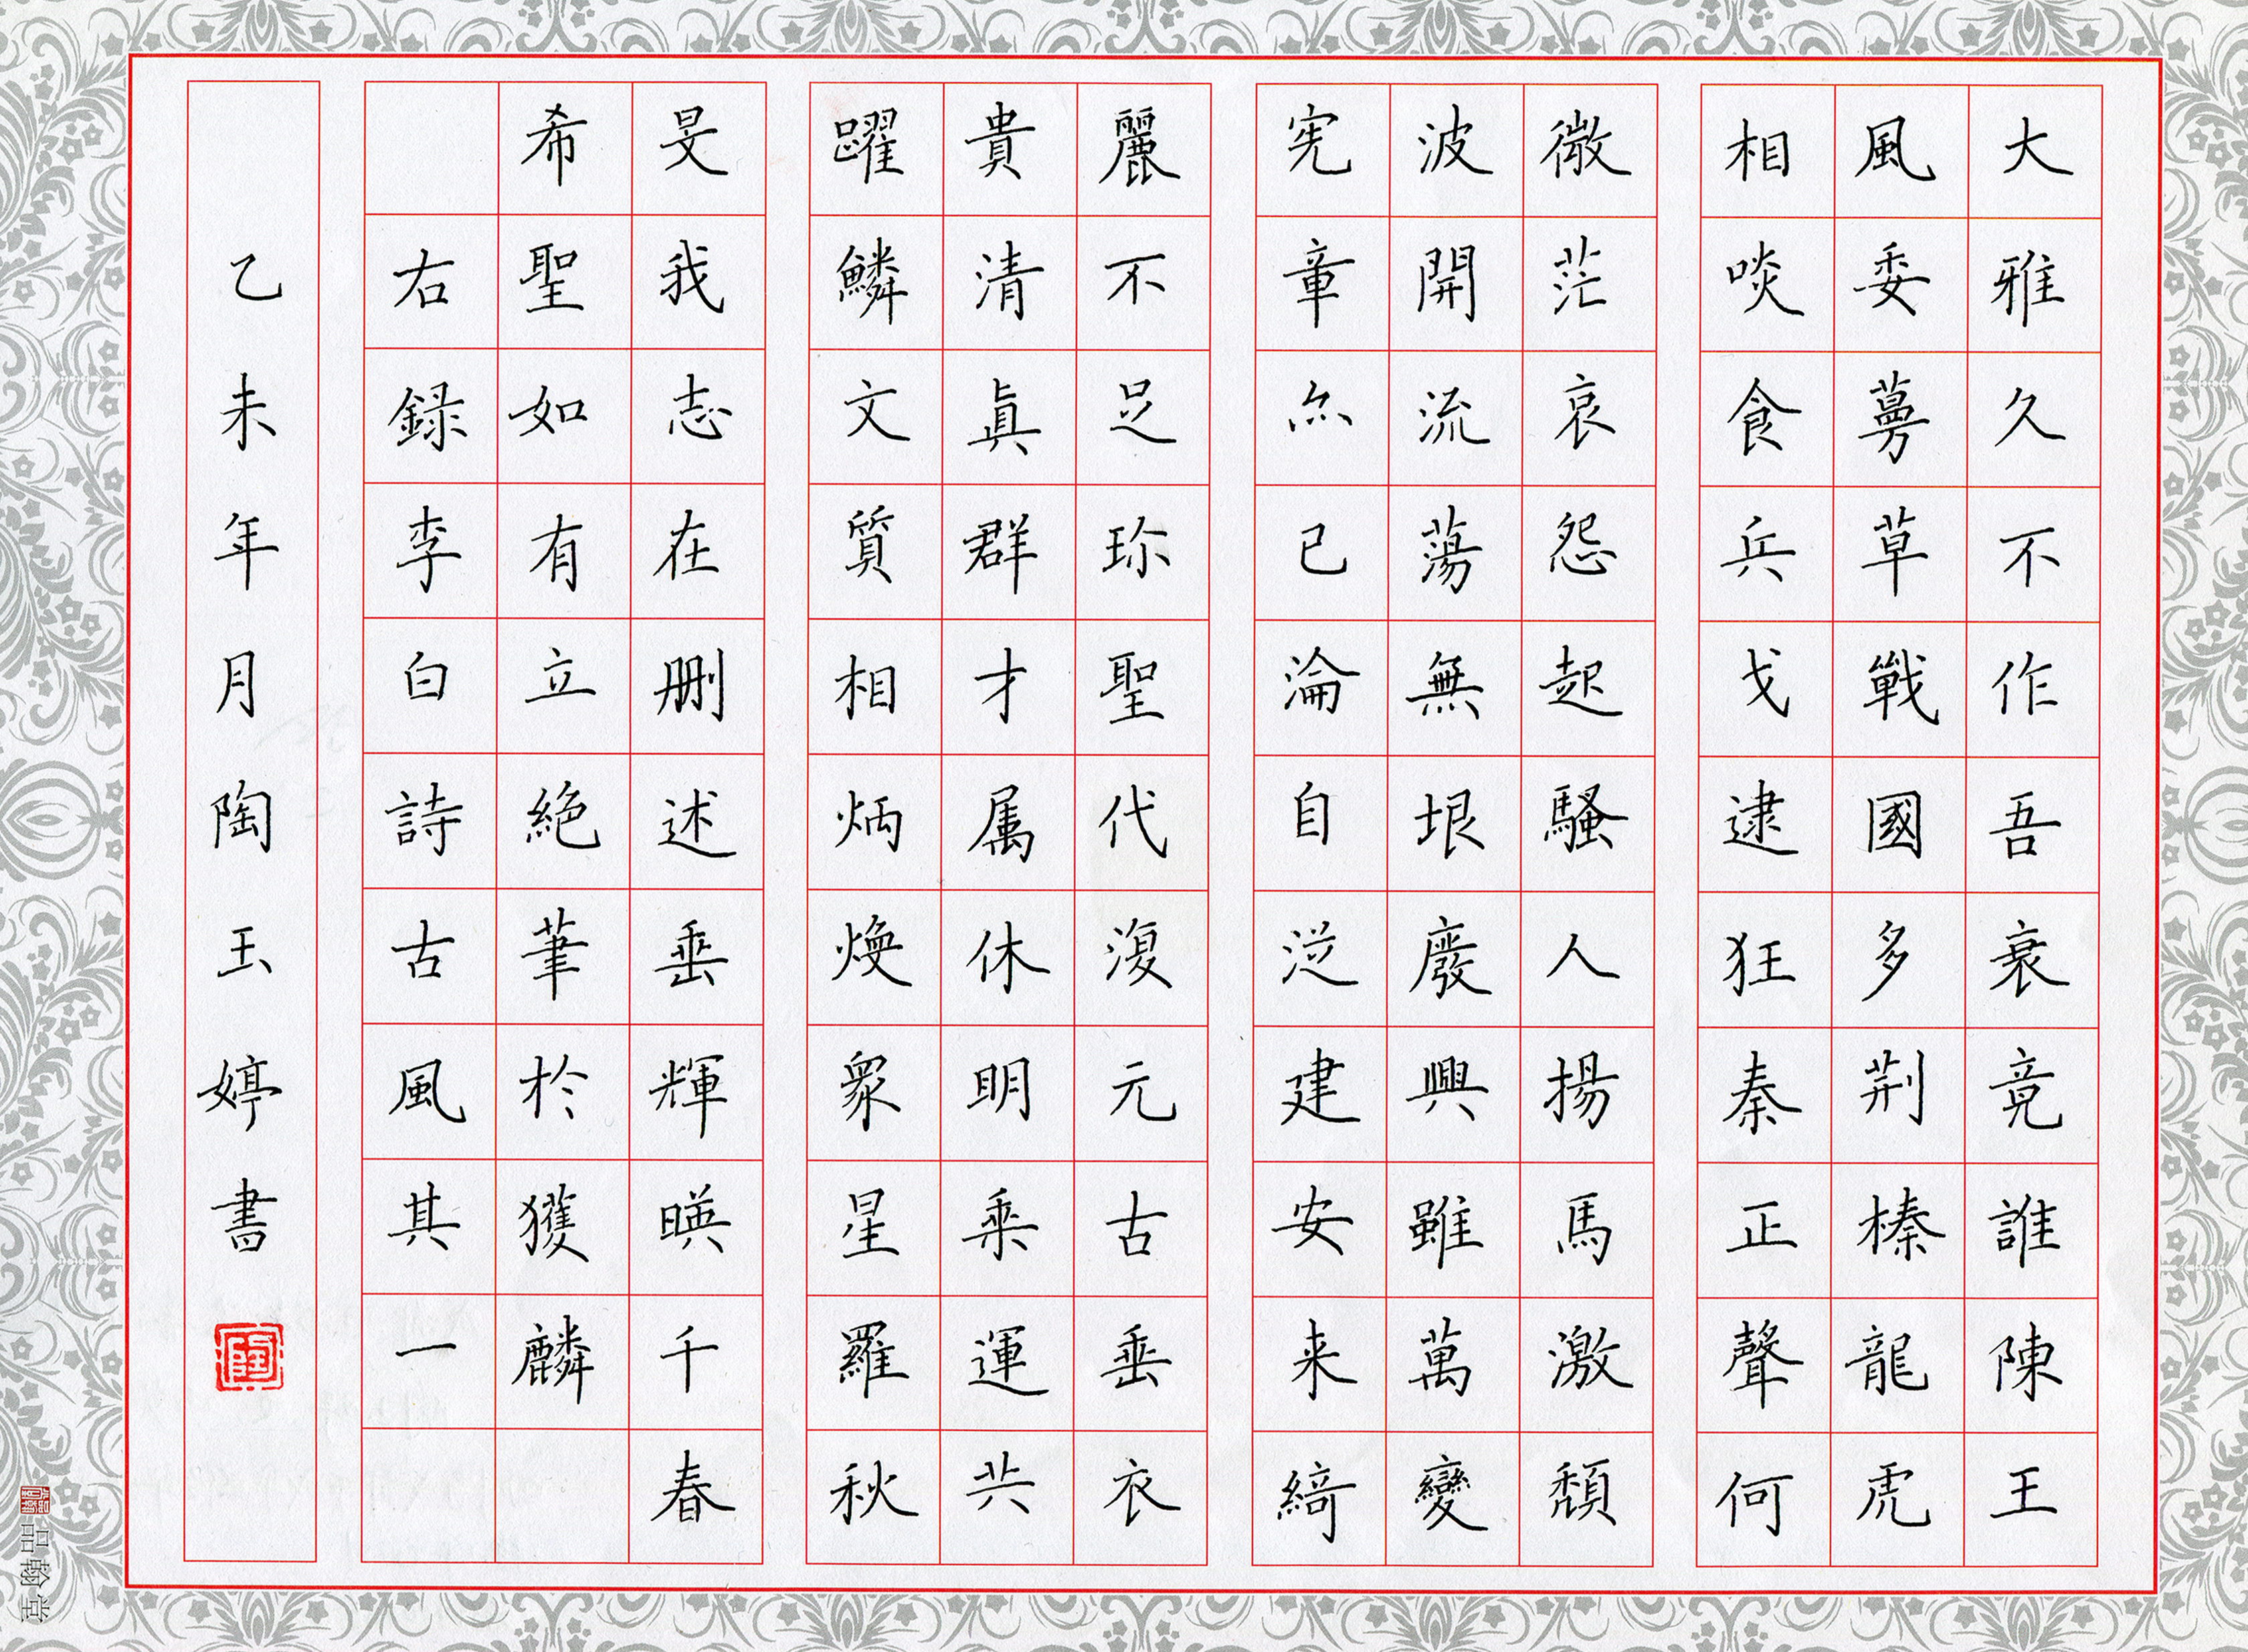 大雅久不作吾衰竟誰陳王
風委蔓草戰國多荆榛龍虎
相啖食兵戈逮狂秦正聲何
微茫哀怨起騷人揚馬激頹
波開流蕩無垠廢興雖萬變
憲章亦已淪自從建安来綺
麗不足珎聖代復元古垂衣
貴清真群才属休明乘運共
躍鱗文質相炳煥眾星羅秋
旻我志在刪述垂輝暎千春
希聖如有立絕筆於獲麟
右録李白詩古風其一
乙未年月陶玉婷書
品翰堂